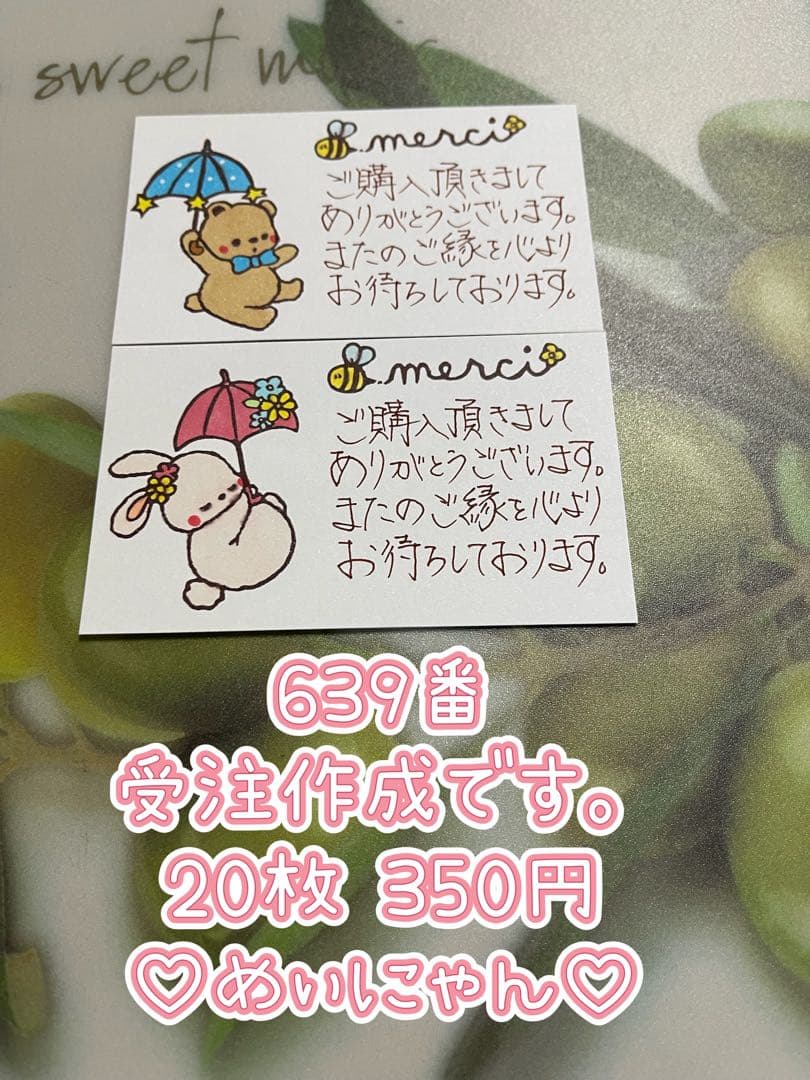 sweet
merci
ご購入頂きまして
ありがとうございます。
またのご縁を心より
お待ちしております。
merci
ご購入頂きまして
ありがとうございます。
またのご縁を心より
お待ちしております。
639番
受注作成です。
20枚 350円
♡めぃにゃん♡